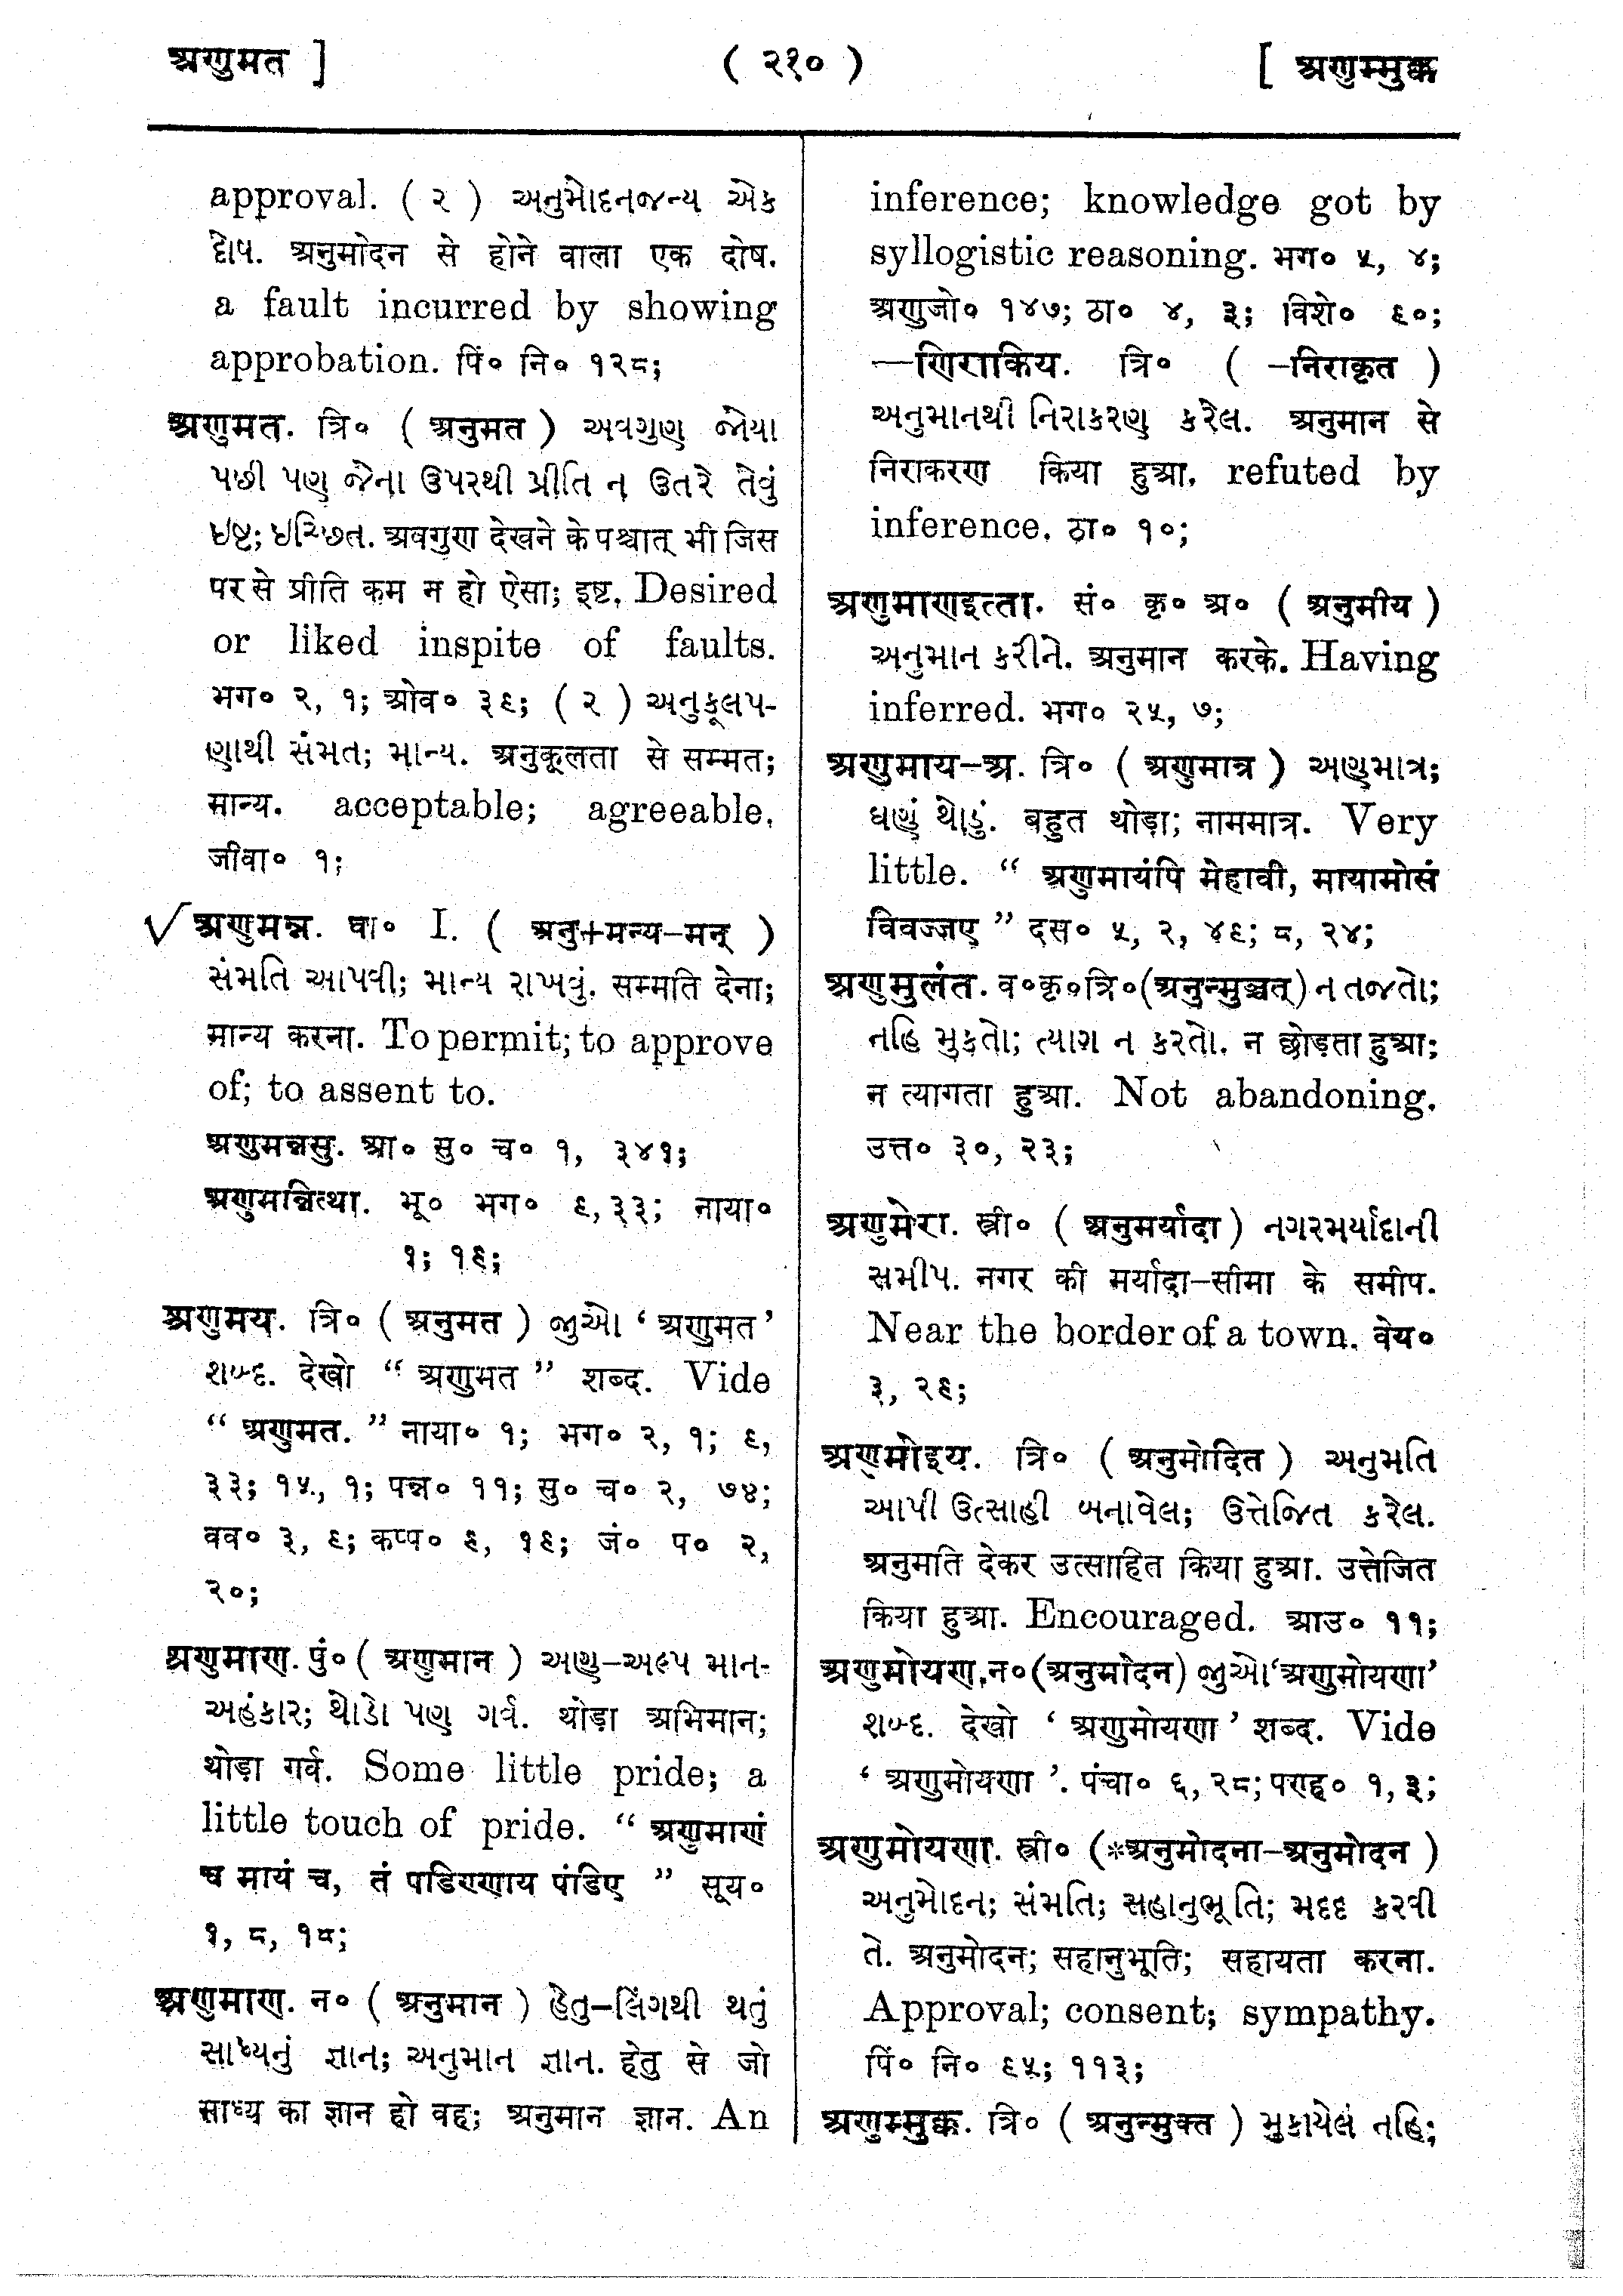 अणुमत ]
( २१० )
[ अणुम्मुक्क
approval. ( २ ) અનુમોદનજન્ય એક
દોષ. अनुमोदन से होने वाला एक दोष.
a fault incurred by showing
approbation. पिं० नि० १२८;
अणुमत. त्रि० ( अनुमत ) અવગુણ જોયા
પછી પણ જેના ઉપરથી પ્રીતિ ન ઉતરે તેવું
ઇષ્ટ; ઇચ્છિત. अवगुण देखने के पश्चात् भी जिस
पर से प्रीति कम न हो ऐसा; इष्ट. Desired
or liked inspite of faults.
भग० २, १; ओव० ३९; ( २ ) અનુકૂલપ-
ણાથી સંમત; માન્ય. अनुकूलता से सम्मत;
मान्य. acceptable; agreeable.
जीवा० १;
√ अणुमन्न. धा० I. ( अनु+मन्य-मन् )
સંમતિ આપવી; માન્ય રાખવું. सम्मति देना;
मान्य करना. To permit; to approve
of; to assent to.
अणुमन्नसु. आ० सु० च० १, ३४१;
अणुमन्नित्था. भू० भग० ९, ३३; नाया०
१; १६;
अणुमय. त्रि० ( अनुमत ) જુઓ ‘ अणुमत ’
શબ્દ. देखो “ अणुमत ” शब्द. Vide
“ अणुमत. ” नाया० १; भग० २, १; ९,
३३; १५, १; पन्न० ११; सु० च० २, ७४;
वव० ३, ९; कप्प० ६, १६; जं० प० २,
२०;
अणुमाण. पुं० ( अणुमान ) અણુ-અલ્પ માન-
અહંકાર; થોડો પણ ગર્વ. थोड़ा अभिमान;
थोड़ा गर्व. Some little pride; a
little touch of pride. “ अणुमाणं
च मायं च, तं पडिण्णाय पंडिए ” सूय०
१, ८, १८;
अणुमाण. न० ( अनुमान ) હેતુ-લિંગથી થતું
સાધ્યનું જ્ઞાન; અનુમાન જ્ઞાન. हेतु से जो
साध्य का ज्ञान हो वह; अनुमान ज्ञान. An
inference; knowledge got by
syllogistic reasoning. भग० ५, ४;
अणुजो० १४७; ठा० ४, ३; विशे० ९०;
—णिराकिय. त्रि० ( -निराकृत )
અનુમાનથી નિરાકરણ કરેલ. अनुमान से
निराकरण किया हुआ. refuted by
inference. ठा० १०;
अणुमाणइत्ता. सं० कृ० अ० ( अनुमीय )
અનુમાન કરીને. अनुमान करके. Having
inferred. भग० २५, ७;
अणुमाय-अ. त्रि० ( अणुमात्र ) અણુમાત્ર;
ઘણું થોડું. बहुत थोड़ा; नाममात्र. Very
little. “ अणुमायंपि मेहावी, मायामोसं
विवज्जए ” दस० ५, २, ४९; ८, २४;
अणुमुलंत. व०कृ०त्रि०(अनुन्मुञ्चत्) ન તજતો;
નહિ મુકતો; ત્યાગ ન કરતો. न छोड़ता हुआ;
न त्यागता हुआ. Not abandoning.
उत्त० ३०, २३;
अणुमेरा. स्त्री० ( अनुमर्यादा ) નગરમર્યાદાની
સમીપ. नगर की मर्यादा-सीमा के समीप.
Near the border of a town. वेय०
३, २६;
अणुमोइय. त्रि० ( अनुमोदित ) અનુમતિ
આપી ઉત્સાહી બનાવેલ; ઉત્તેજિત કરેલ.
अनुमति देकर उत्साहित किया हुआ. उत्तेजित
किया हुआ. Encouraged. आउ० ११;
अणुमोयण. न० (अनुमोदन) જુઓ ‘अणुमोयणा’
શબ્દ. देखो ‘ अणुमोयणा ’ शब्द. Vide
‘ अणुमोयणा ’. पंचा० ६, २८; पण्ह० १, ३;
अणुमोयणा. स्त्री० (*अनुमोदना-अनुमोदन )
અનુમોદન; સંમતિ; સહાનુભૂતિ; મદદ કરવી
તે. अनुमोदन; सहानुभूति; सहायता करना.
Approval; consent; sympathy.
पिं० नि० ९५; ११३;
अणुम्मुक्क. त्रि० ( अनुन्मुक्त ) મુકાયેલ નહિ;